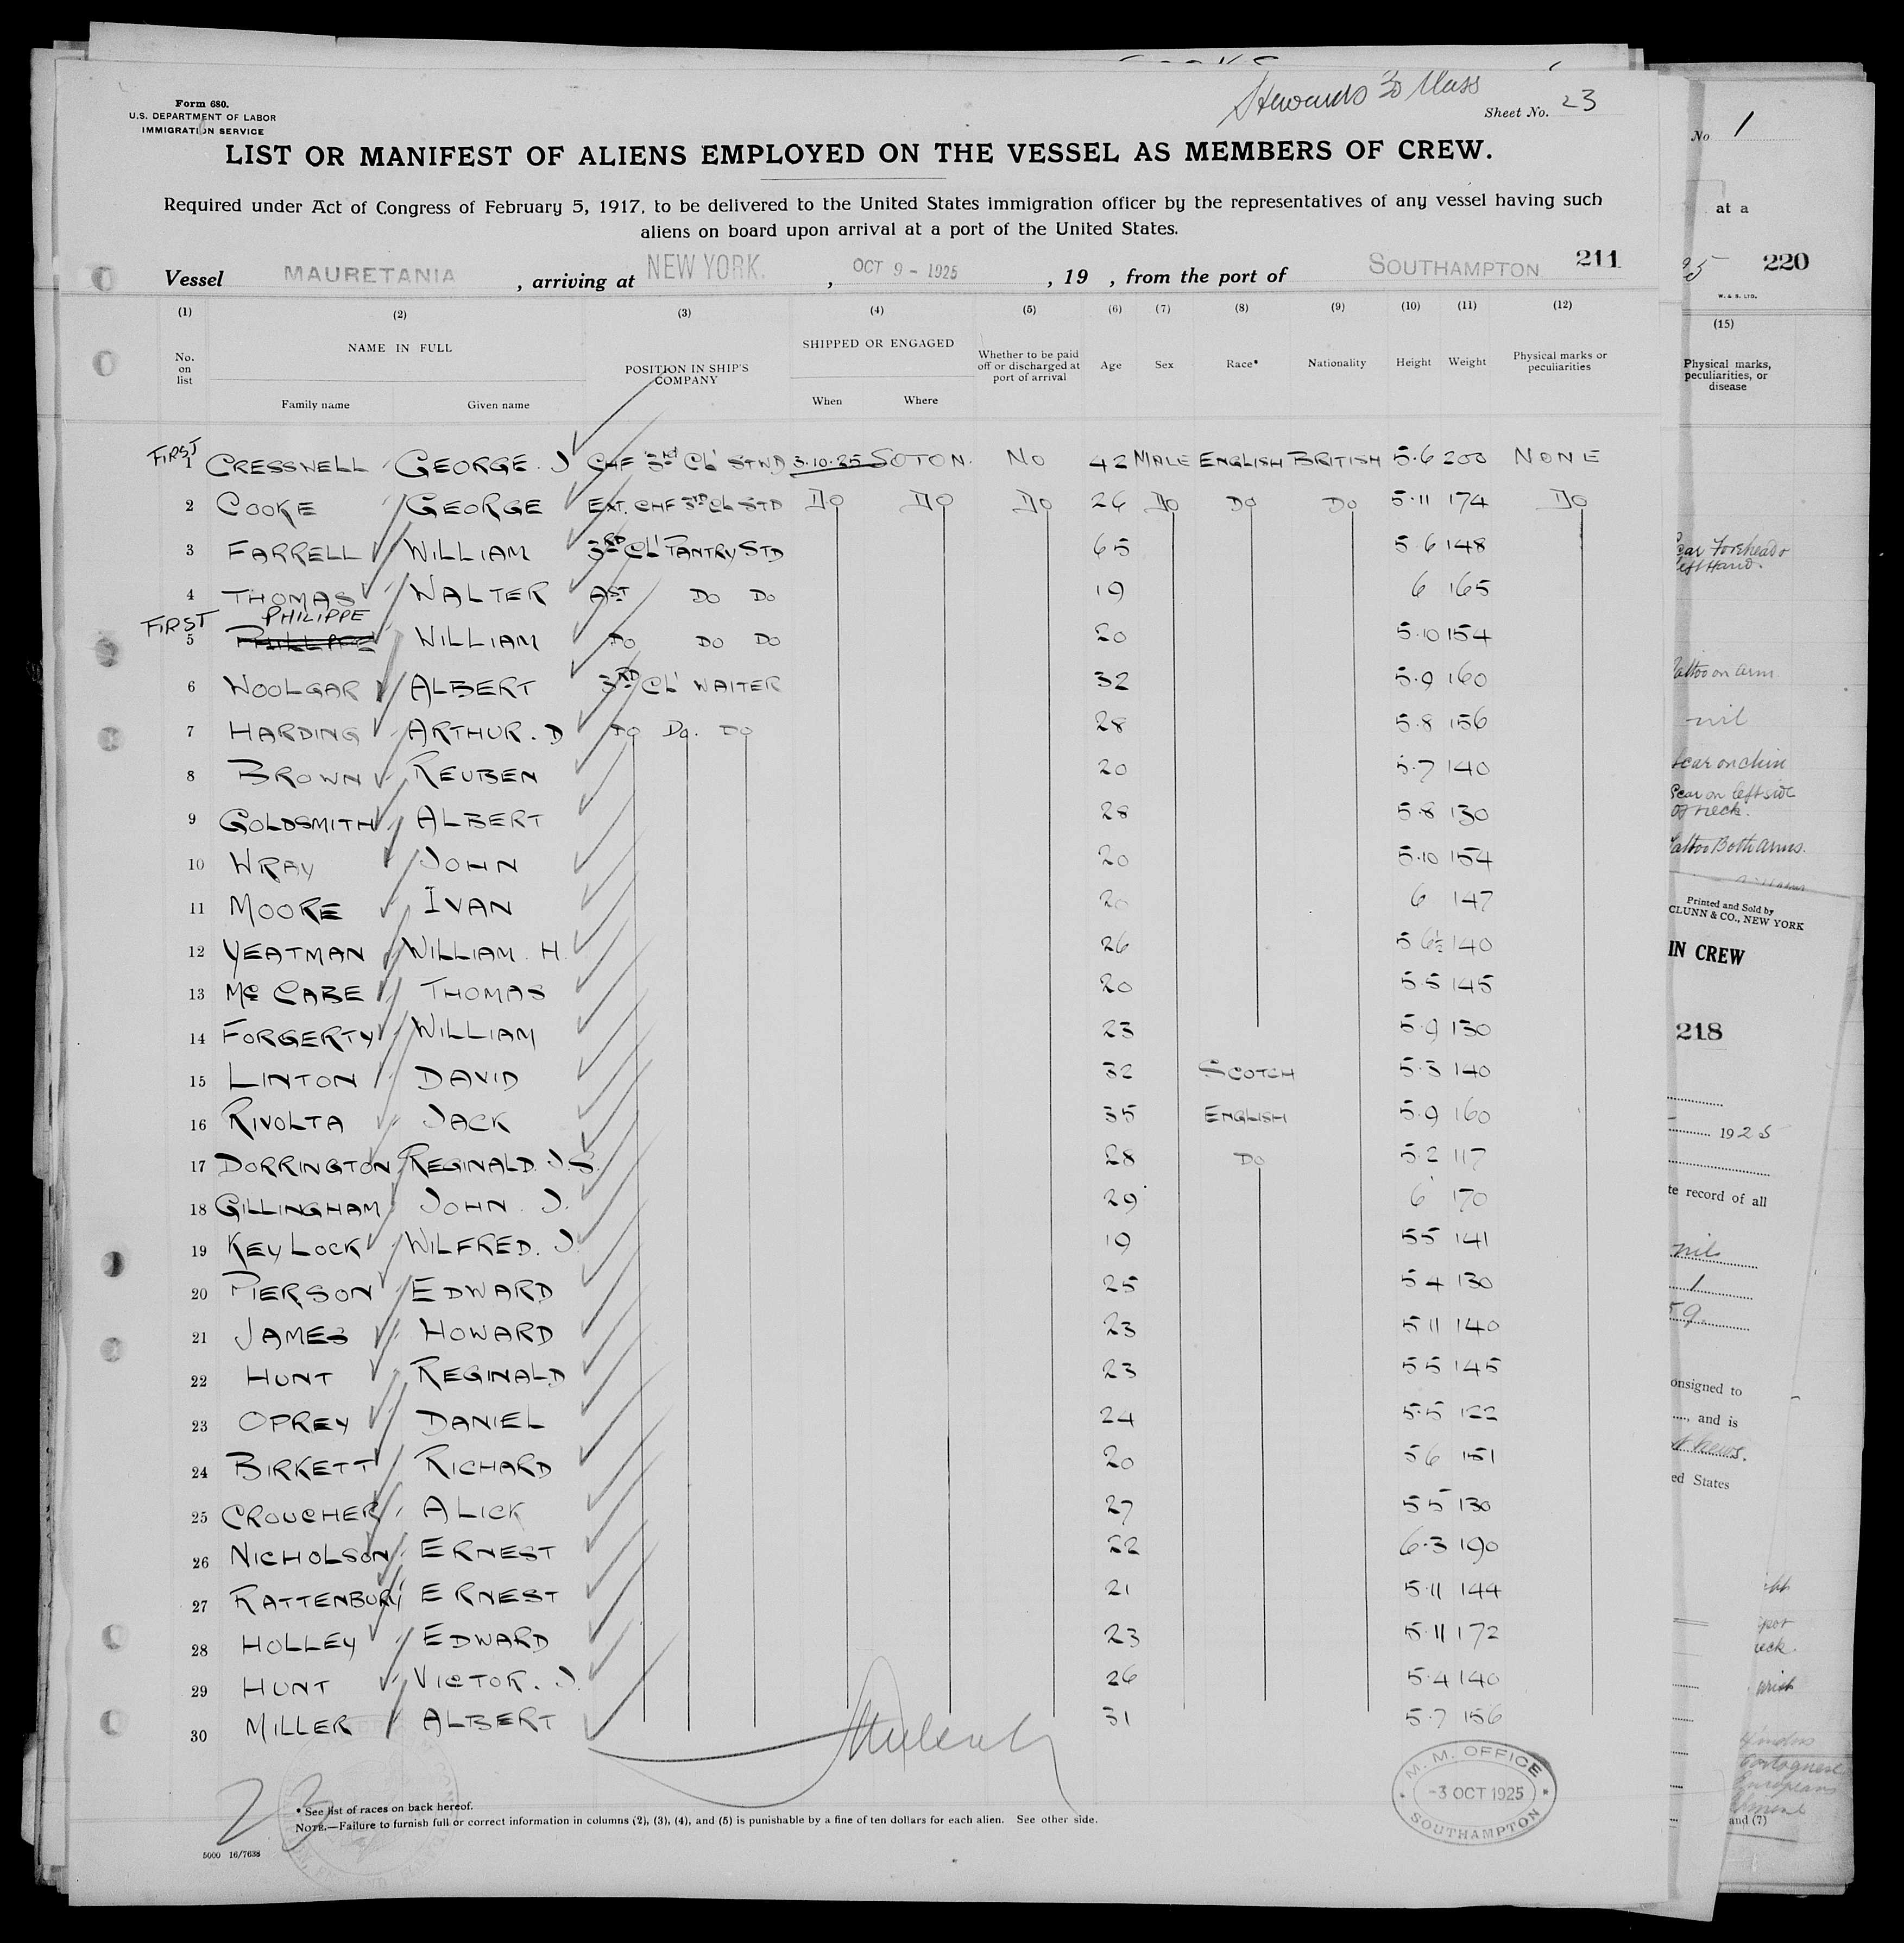 Stewards 3D Class
Form 680.
U.S. DEPARTMENT OF LABOR
IMMIGRATION SERVICE
Sheet No. 23
LIST OR MANIFEST OF ALIENS EMPLOYED ON THE VESSEL AS MEMBERS OF CREW.
Required under Act of Congress of February 5, 1917, to be delivered to the United States immigration officer by the representatives of any vessel having such
aliens on board upon arrival at a port of the United States.
211
Vessel MAURETANIA , arriving at NEW YORK. , OCT 9 - 1925 , 19 , from the port of SOUTHAMPTON
(1) (2) (3) (4) (5) (6) (7) (8) (9) (10) (11) (12)
No. on list NAME IN FULL Family name Given name POSITION IN SHIP'S COMPANY SHIPPED OR ENGAGED When Where Whether to be paid off or discharged at port of arrival Age Sex Race* Nationality Height Weight Physical marks or peculiarities
FIRST 1 CRESSWELL GEORGE. J CHF 3rd CL' STWD 3.10.25 SOTON. NO 42 MALE ENGLISH BRITISH 5.6 200 NONE
2 COOKE GEORGE EXT. CHF 3RD CL STD DO DO DO 26 DO DO DO 5.11 174 DO
3 FARRELL WILLIAM 3RD CL' PANTRY STD 65 5.6 148
4 THOMAS WALTER AST DO DO 19 6 165
FIRST 5 PHILIPPE WILLIAM DO DO DO 20 5.10 154
6 WOOLGAR ALBERT 3RD CL' WAITER 32 5.9 160
7 HARDING ARTHUR. D DO DO. DO 28 5.8 156
8 BROWN REUBEN 20 5.7 140
9 GOLDSMITH ALBERT 28 5.8 130
10 WRAY JOHN 20 5.10 154
11 MOORE IVAN 20 6 147
12 YEATMAN WILLIAM. H. 26 5 6½ 140
13 Mc CABE THOMAS 20 5.5 145
14 FORGERTY WILLIAM 23 5.9 130
15 LINTON DAVID 32 SCOTCH 5.3 140
16 RIVOLTA JACK 35 ENGLISH 5.9 160
17 DORRINGTON REGINALD. J.S. 28 DO 5.2 117
18 GILLINGHAM JOHN. J. 29 6 170
19 KEYLOCK WILFRED. J. 19 5 5 141
20 PIERSON EDWARD 25 5 4 130
21 JAMES HOWARD 23 5 11 140
22 HUNT REGINALD 23 5 5 145
23 OPREY DANIEL 24 5.5 122
24 BIRKETT RICHARD 20 5 6 151
25 CROUCHER ALICK 27 5 5 130
26 NICHOLSON ERNEST 22 6.3 190
27 RATTENBURY ERNEST 21 5.11 144
28 HOLLEY EDWARD 23 5.11 172
29 HUNT VICTOR. J. 26 5.4 140
30 MILLER ALBERT 31 5.7 156
23
M. M. OFFICE
-3 OCT 1925
SOUTHAMPTON
* See list of races on back hereof.
NOTE.—Failure to furnish full or correct information in columns (2), (3), (4), and (5) is punishable by a fine of ten dollars for each alien. See other side.
5000 16/7638
No 1
at a
220
W. & S. LTD.
(15)
Physical marks,
peculiarities, or
disease
Tattoo on arm
nil
Scar on chin
Scar on left side
of neck.
Tattoo Both arms.
Printed and Sold by
CLUNN & CO., NEW YORK
IN CREW
218
1925
te record of all
nil
1
59
onsigned to
, and is
ed States
and (7)